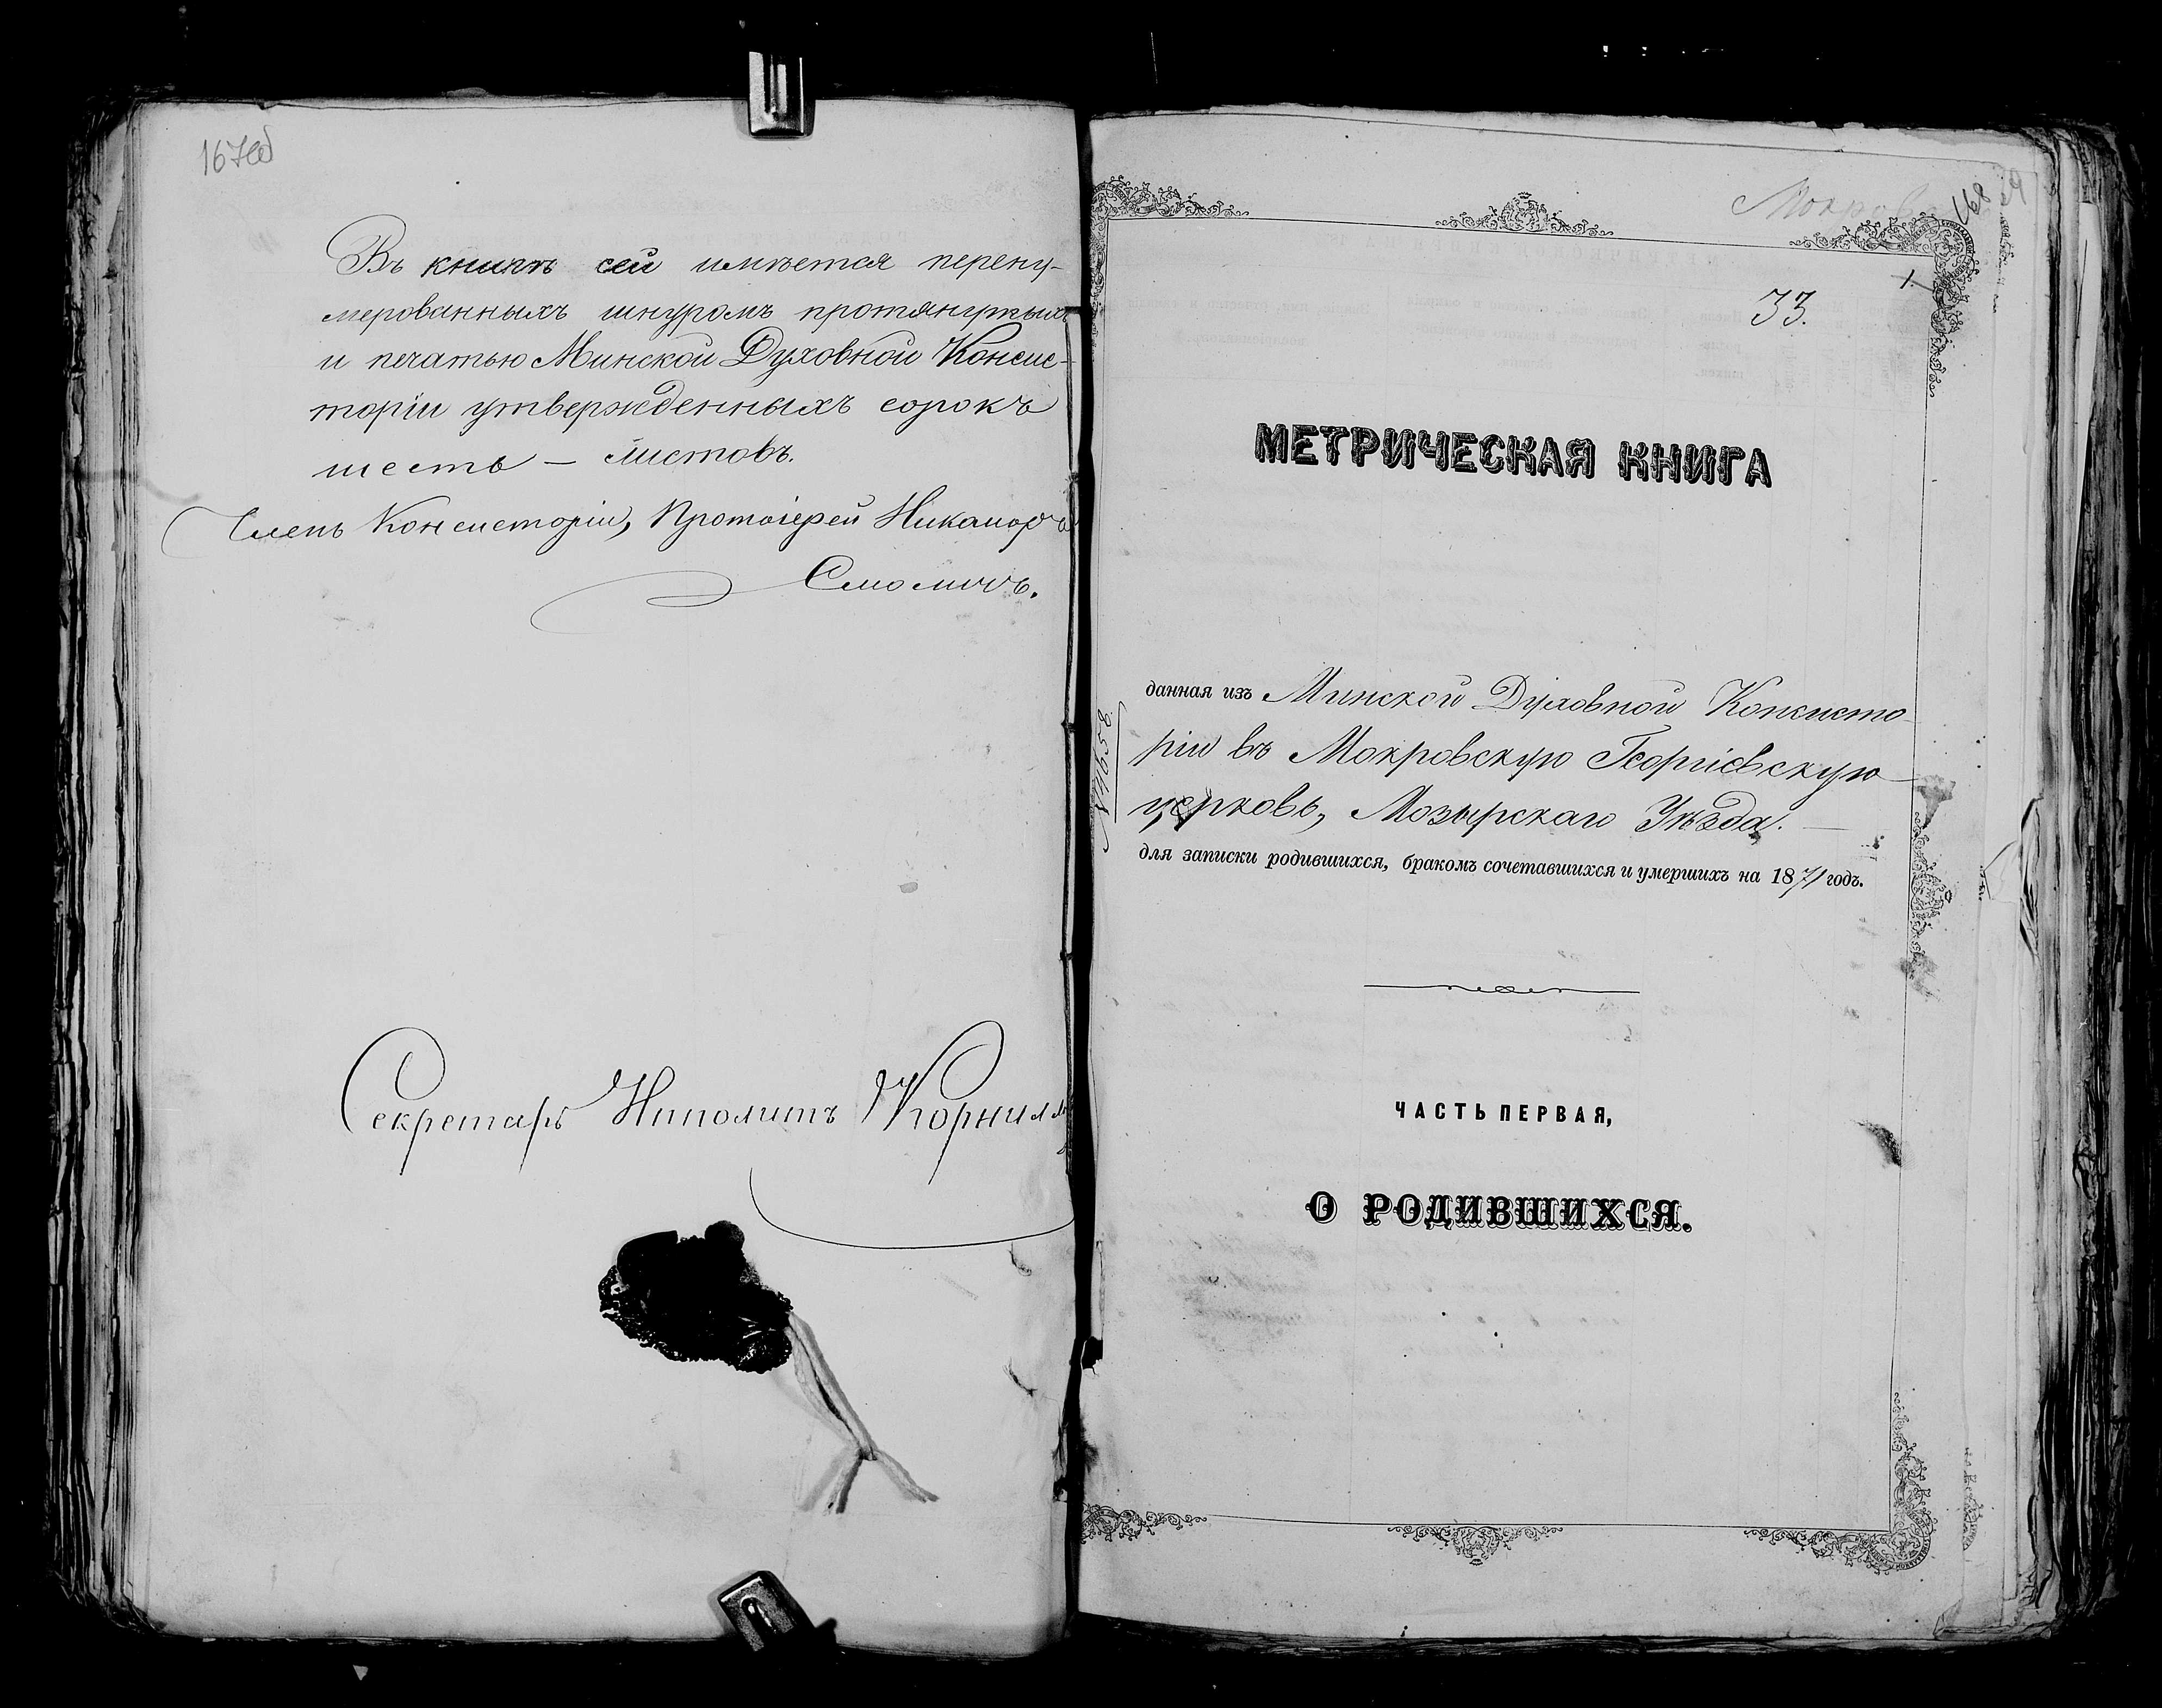 167об
Въ книгѣ сей имѣется перену-
мерованныхъ шнуромъ протянутыхъ
и печатью Минской Духовной Консис-
торіи утвержденныхъ сорокъ
шесть — листовъ.
Членъ Консисторіи, Протоіерей Никаноръ
Смоличъ.
Секретарь Иполитъ
168
1.
33.
МЕТРИЧЕСКАЯ КНИГА
данная изъ Минской Духовной Консисто-
ріи въ Мокровскую Георгіевскую
церковь, Мозырскаго Уѣзда. —
для записки родившихся, бракомъ сочетавшихся и умершихъ на 1871 годъ.
ЧАСТЬ ПЕРВАЯ,
О РОДИВШИХСЯ.